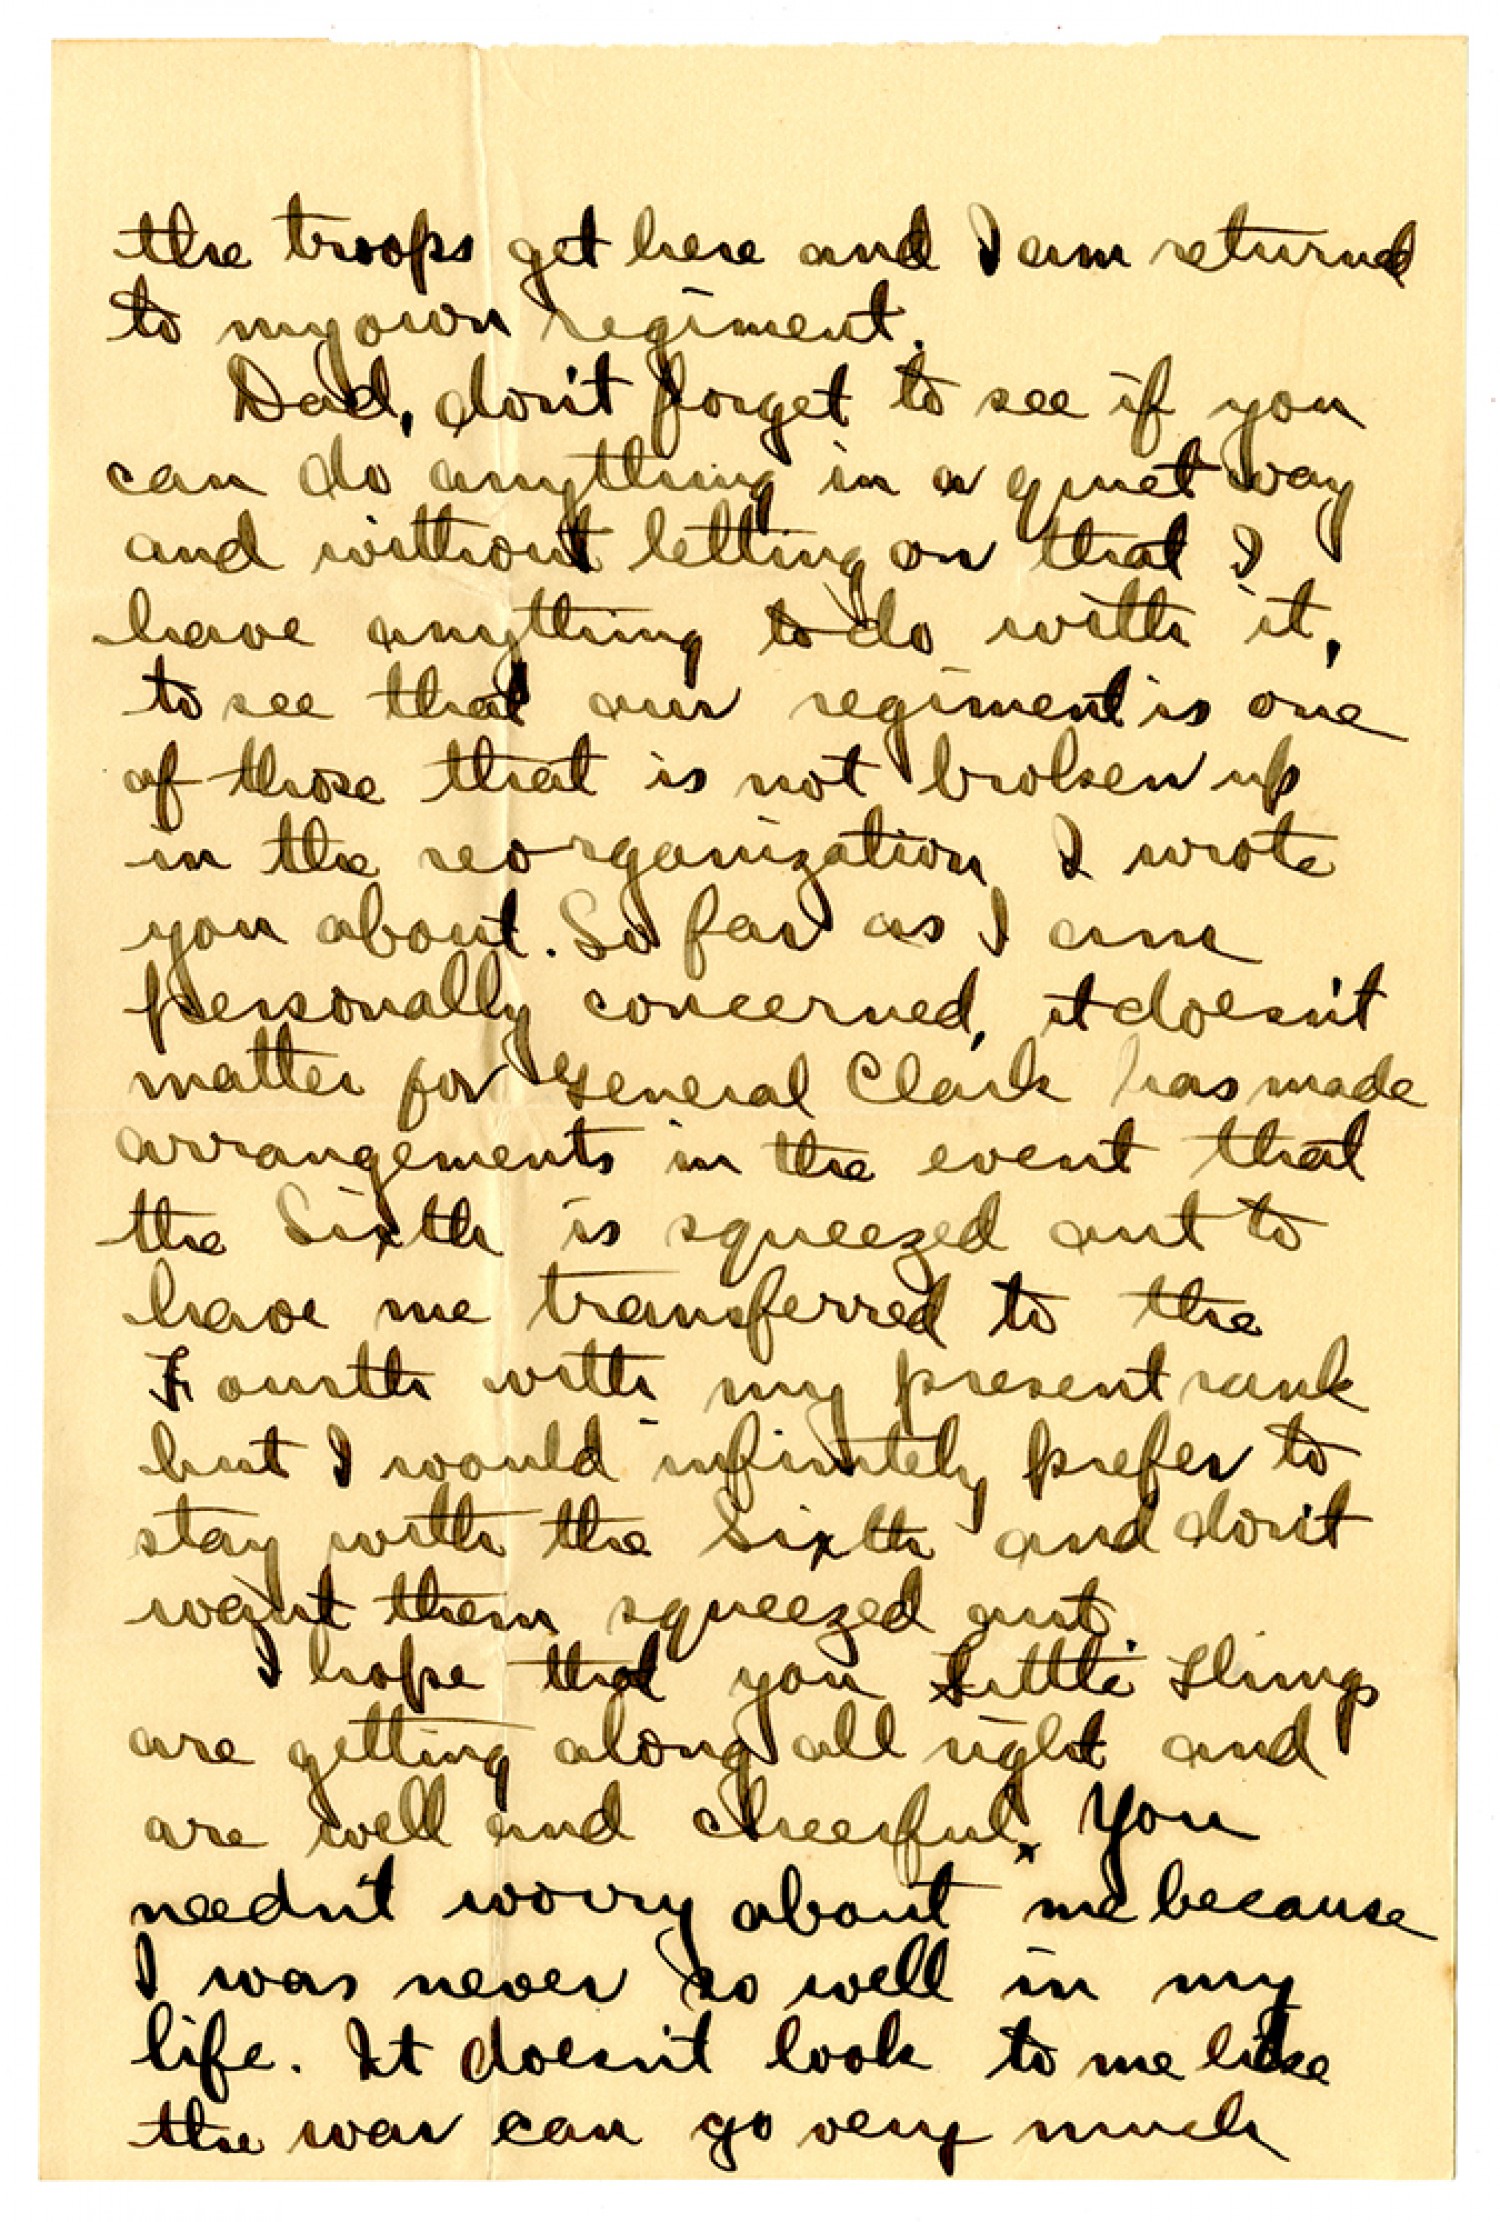 the troops get here and I am returned
to my own regiment.
Dad, don't forget to see if you
can do anything in a quiet way
and without letting on that I
have anything to do with it,
to see that our regiment is one
of those that is not broken up
in the reorganization I wrote
you about. So far as I am
personally concerned, it doesn't
matter for General Clark has made
arrangements in the event that
the Sixth is squeezed out to
have me transferred to the
Fourth with my present rank
but I would infinitely prefer to
stay with the Sixth and don't
want them squeezed out.
I hope that you Little Things
are getting along all right and
are well and cheerful. You
needn't worry about me because
I was never so well in my
life. It doesn't look to me like
the war can go very much